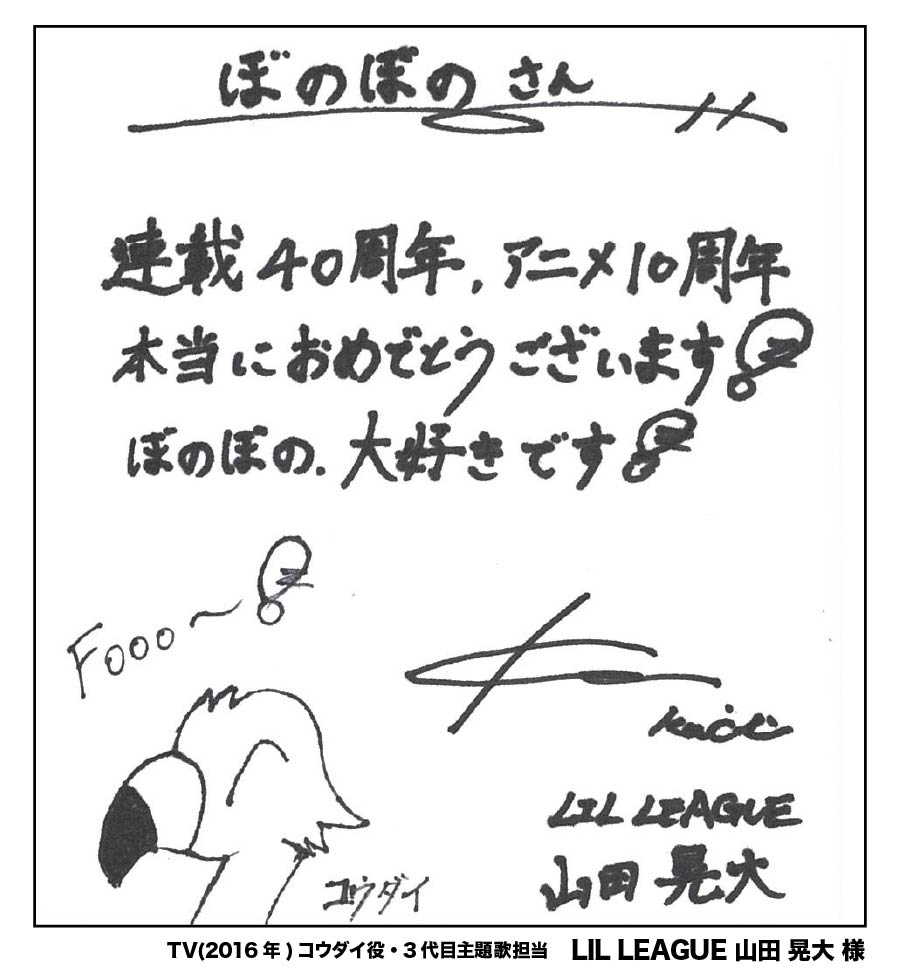 ぼのぼの さん
連載40周年,アニメ10周年
本当におめでとうございます!
ぼのぼの.大好きです!
Fooo〜!
コウダイ
LIL LEAGUE
山田 晃大
TV(2016年)コウダイ役・3代目主題歌担当 LIL LEAGUE 山田 晃大 様